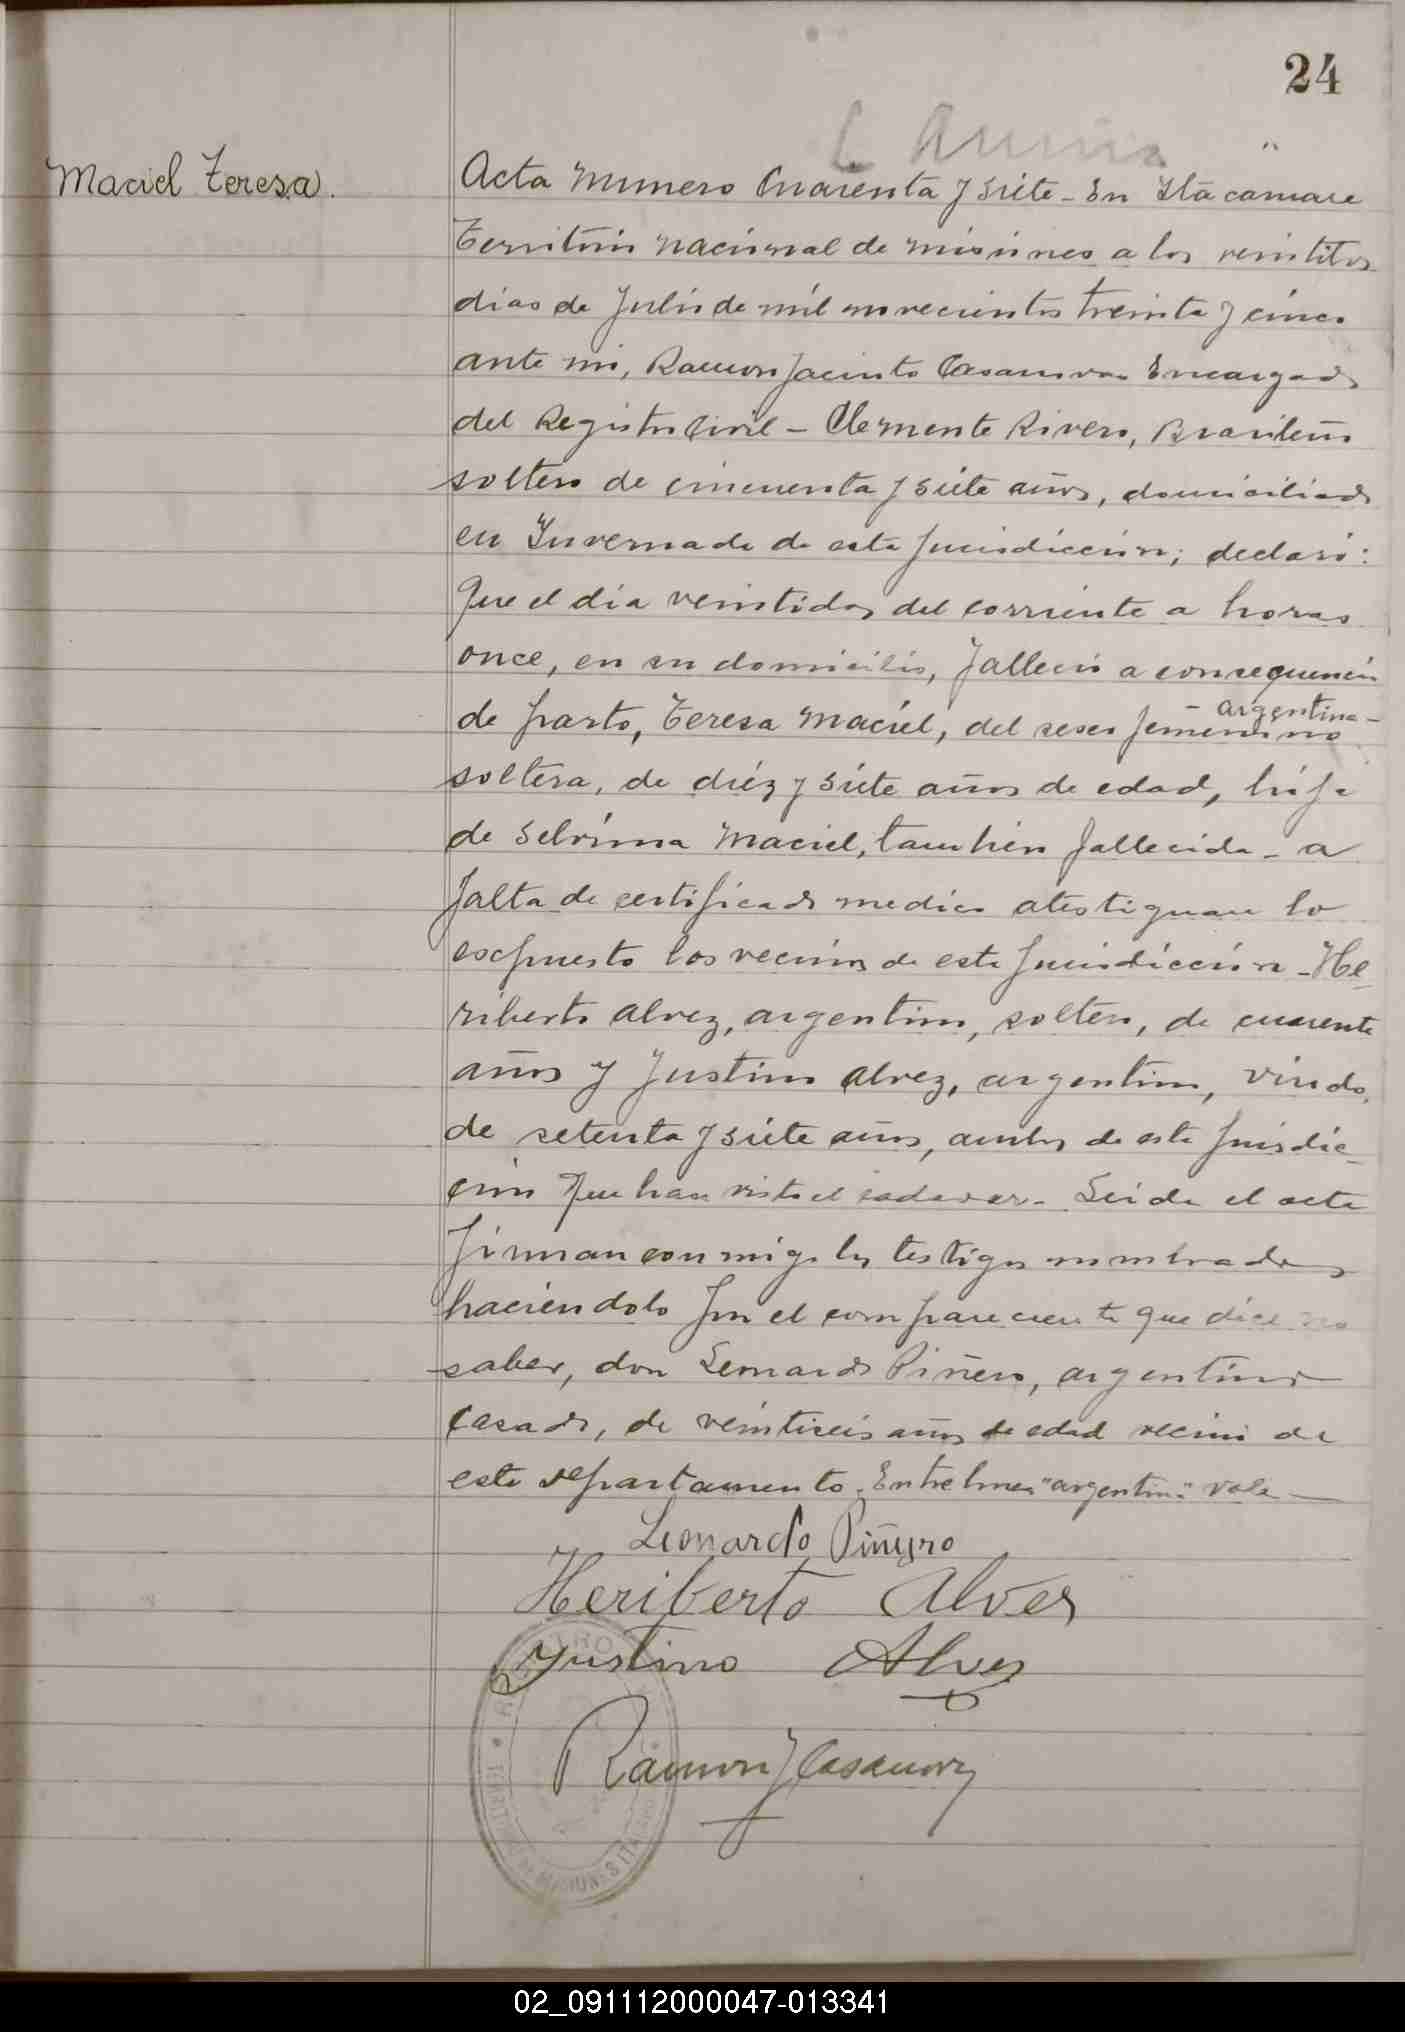 24
Maciel Teresa.
Acta Numero Cuarenta y siete - En Itacaruare
Territorio Nacional de Misiones a los veintidos
dias de Julio de mil novecientos treinta y cinco
ante mi, Ramon Jacinto Casanova Encargado
del Registro Civil - Clemente Rivero, Brasileño
soltero de cincuenta y siete años, domiciliado
en Invernada de esta Jurisdicción; declaró:
Que el día veintidos del corriente a horas
once, en su domicilio, falleció a consequencia
de parto, Teresa Maciel, del sexo femenino - argentina -
soltera, de diéz y siete años de edad, hija
de Maciel, tambien fallecida - a
falta de certificado medico atestiguan lo
expuesto los vecinos de esta Jurisdicción - He-
riberto Alvez, argentino, soltero, de cuarenta
años y Justino Alvez, argentino, viudo,
de setenta y siete años, ambos de esta Jurisdic-
ción que han visto el cadaver - Leida el acta
firman conmigo los testigos nombrados
haciendolo por el compareciente que dice no
saber, don Leonardo Piñero, argentino
casado, de veintiseis años de edad vecino de
este departamento. Entrelineas "argentina" vale —
Leonardo Piñeyro
Heriberto Alves
Justino Alves
Ramon J Casanova
REGISTRO
TERRITORIO DE MISIONES
02_091112000047-013341